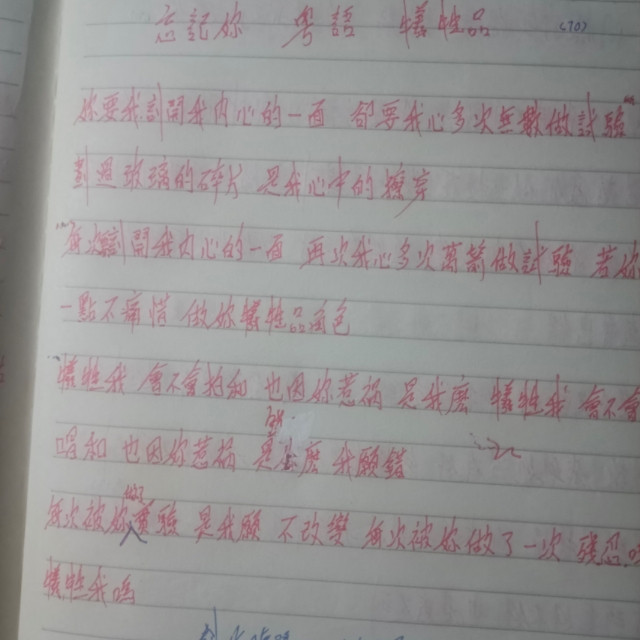 忘記你 粵語 犧牲品 (70)
你要我割開我內心的一面 卻要我心多次無數做試驗
割過玻璃的碎片 是我心中的擁
每次割開我內心的一面 再次我心多次 做試驗 若你
一點不痛惜 做你犧牲品角色
犧牲我 會不會 知 也因你惹禍 是我 犧牲我 會不會
唱和 也因你惹禍 是 我願錯
每次被你做實驗 是我願 不改變 每次被你做了一次 殘忍
犧牲我嗎